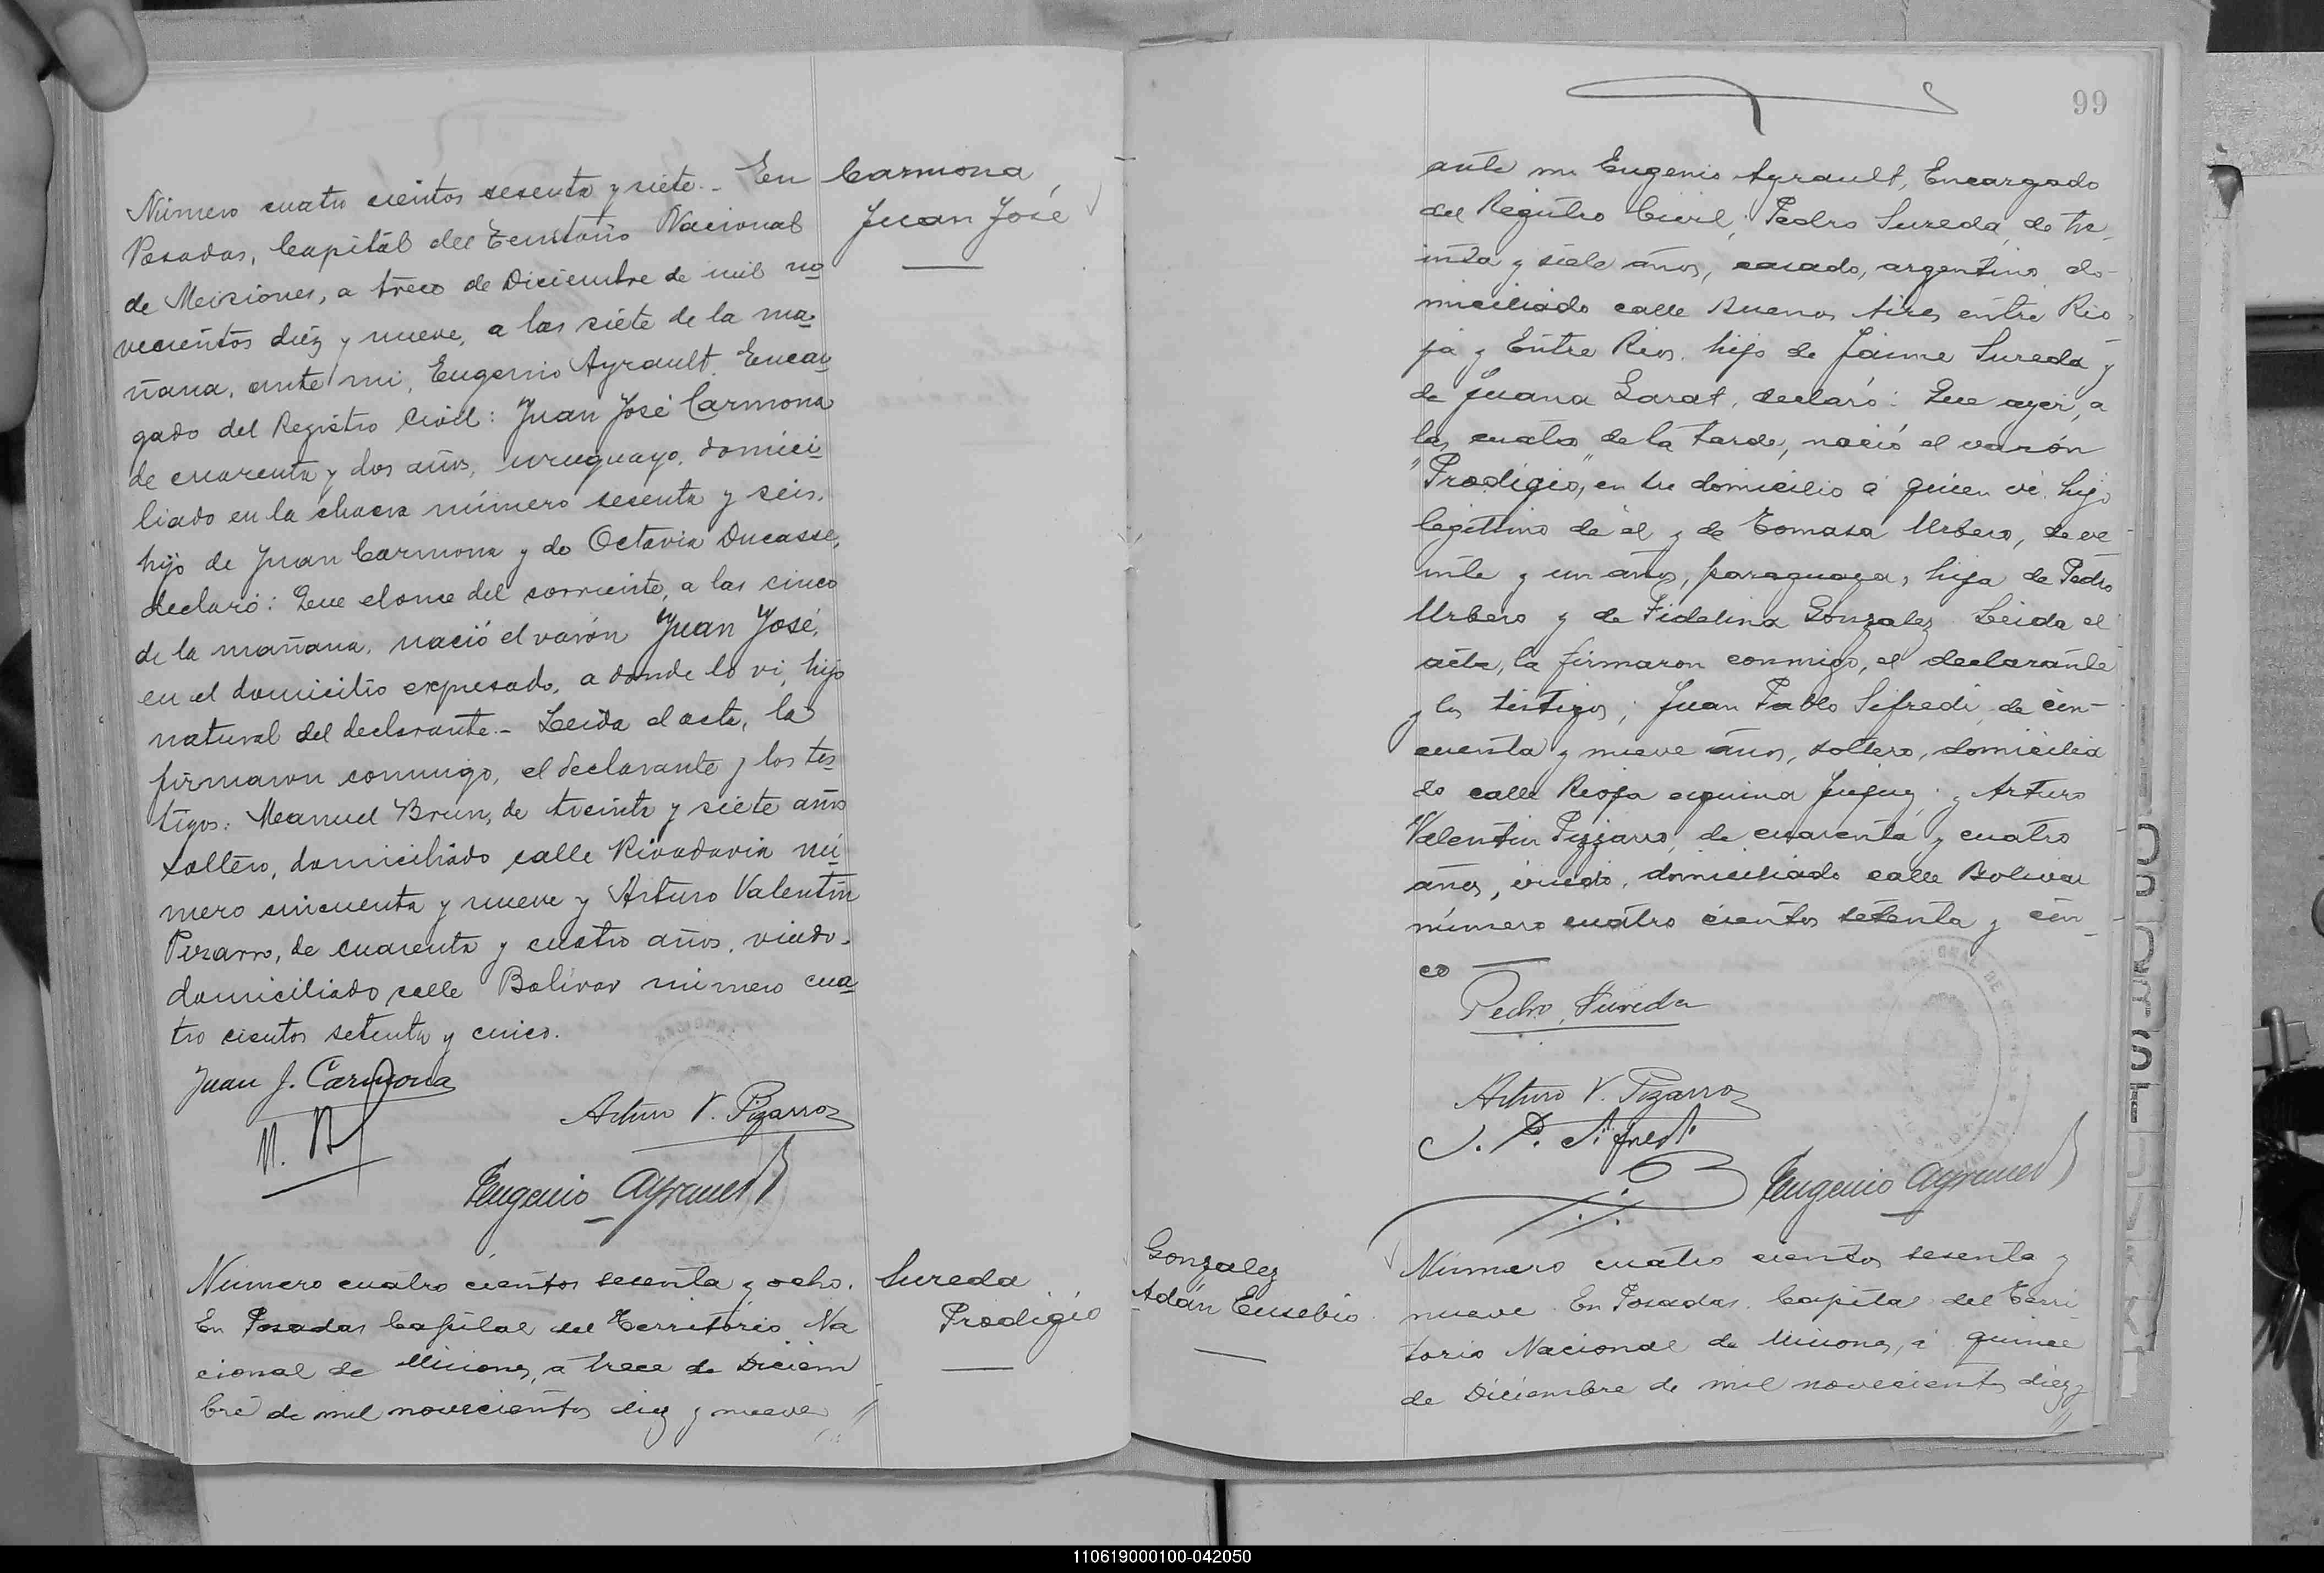 Número cuatro cientos sesenta y siete.- En
Posadas, Capital del Territorio Nacional
de Misiones, a trece de Diciembre de mil no
vecientos diéz y nueve, a las siéte de la ma
ñana, ante mi, Eugenio Ayrault, Encar
gado del Registro Civil: Juan José Carmona
de cuarenta y dos años, uruguayo, domici
liado en la chacra número sesenta y seis,
hijo de Juan Carmona y de Octavia Ducasse,
declaró: Que el once del corriente, a las cinco
de la mañana, nació el varón Juan José,
en el domicilio expresado, a donde lo vi, hijo
natural del declarante.- Leida el acta, la
firmaron conmigo, el declarante y los tes
tigos: Manuel Brun, de treinta y siete años
soltero, domiciliado calle Rivadavia nú
mero cincuenta y nueve y Arturo Valentín
Pizarro, de cuarenta y cuatro años, viudo,
domiciliado calle Bolívar número cua
tro cientos setenta y cinco.
Juan J. Carmona
Arturo V. Pizarro
M. B
Eugenio Ayrault
Carmona
Juan José
Número cuatro cientos sesenta y ocho.
En Posadas Capital del Territorio Na
cional de Misiones, a trece de Diciem
bre de mil novecientos diez y nueve
Sureda
Prodigio
99
ante mi Eugenio Ayrault, Encargado
del Registro Civil; Pedro Sureda, de tre
inta y siete años, casado, argentino do-
miciliado calle Buenos Aires entre Rio
ja y Entre Rios, hijo de Jaime Sureda y
de Juana Garat, declaró: Que ayer, a
las cuatro de la tarde, nació el varón
"Prodigio", en su domicilio á quien vi hijo
legítimo de él y de Tomasa Urbero, de ve
inte y un años, paraguaya, hija de Pedro
Urbero y de Fidelina Gonzalez. Leida el
acta, la firmaron conmigo, el declarante
y los testigos; Juan Pablo Sifredi, de cin-
cuenta y nueve años, soltero, domicilia
do calle Rioja esquina Jujuy; y Arturo
Valentin Pizzarro, de cuarenta y cuatro
años, viudo, domiciliado calle Bolivar
número cuatro cientos setenta y cin
co
Pedro Sureda
Arturo V. Pizarro
J. P. Sifredi
Eugenio Ayrault
Gonzalez
Adán Eusebio
Número cuatro cientos sesenta y
nueve. En Posadas, Capital del Terri
torio Nacional de Misiones, á quince
de Diciembre de mil novecientos diez y
110619000100-042050